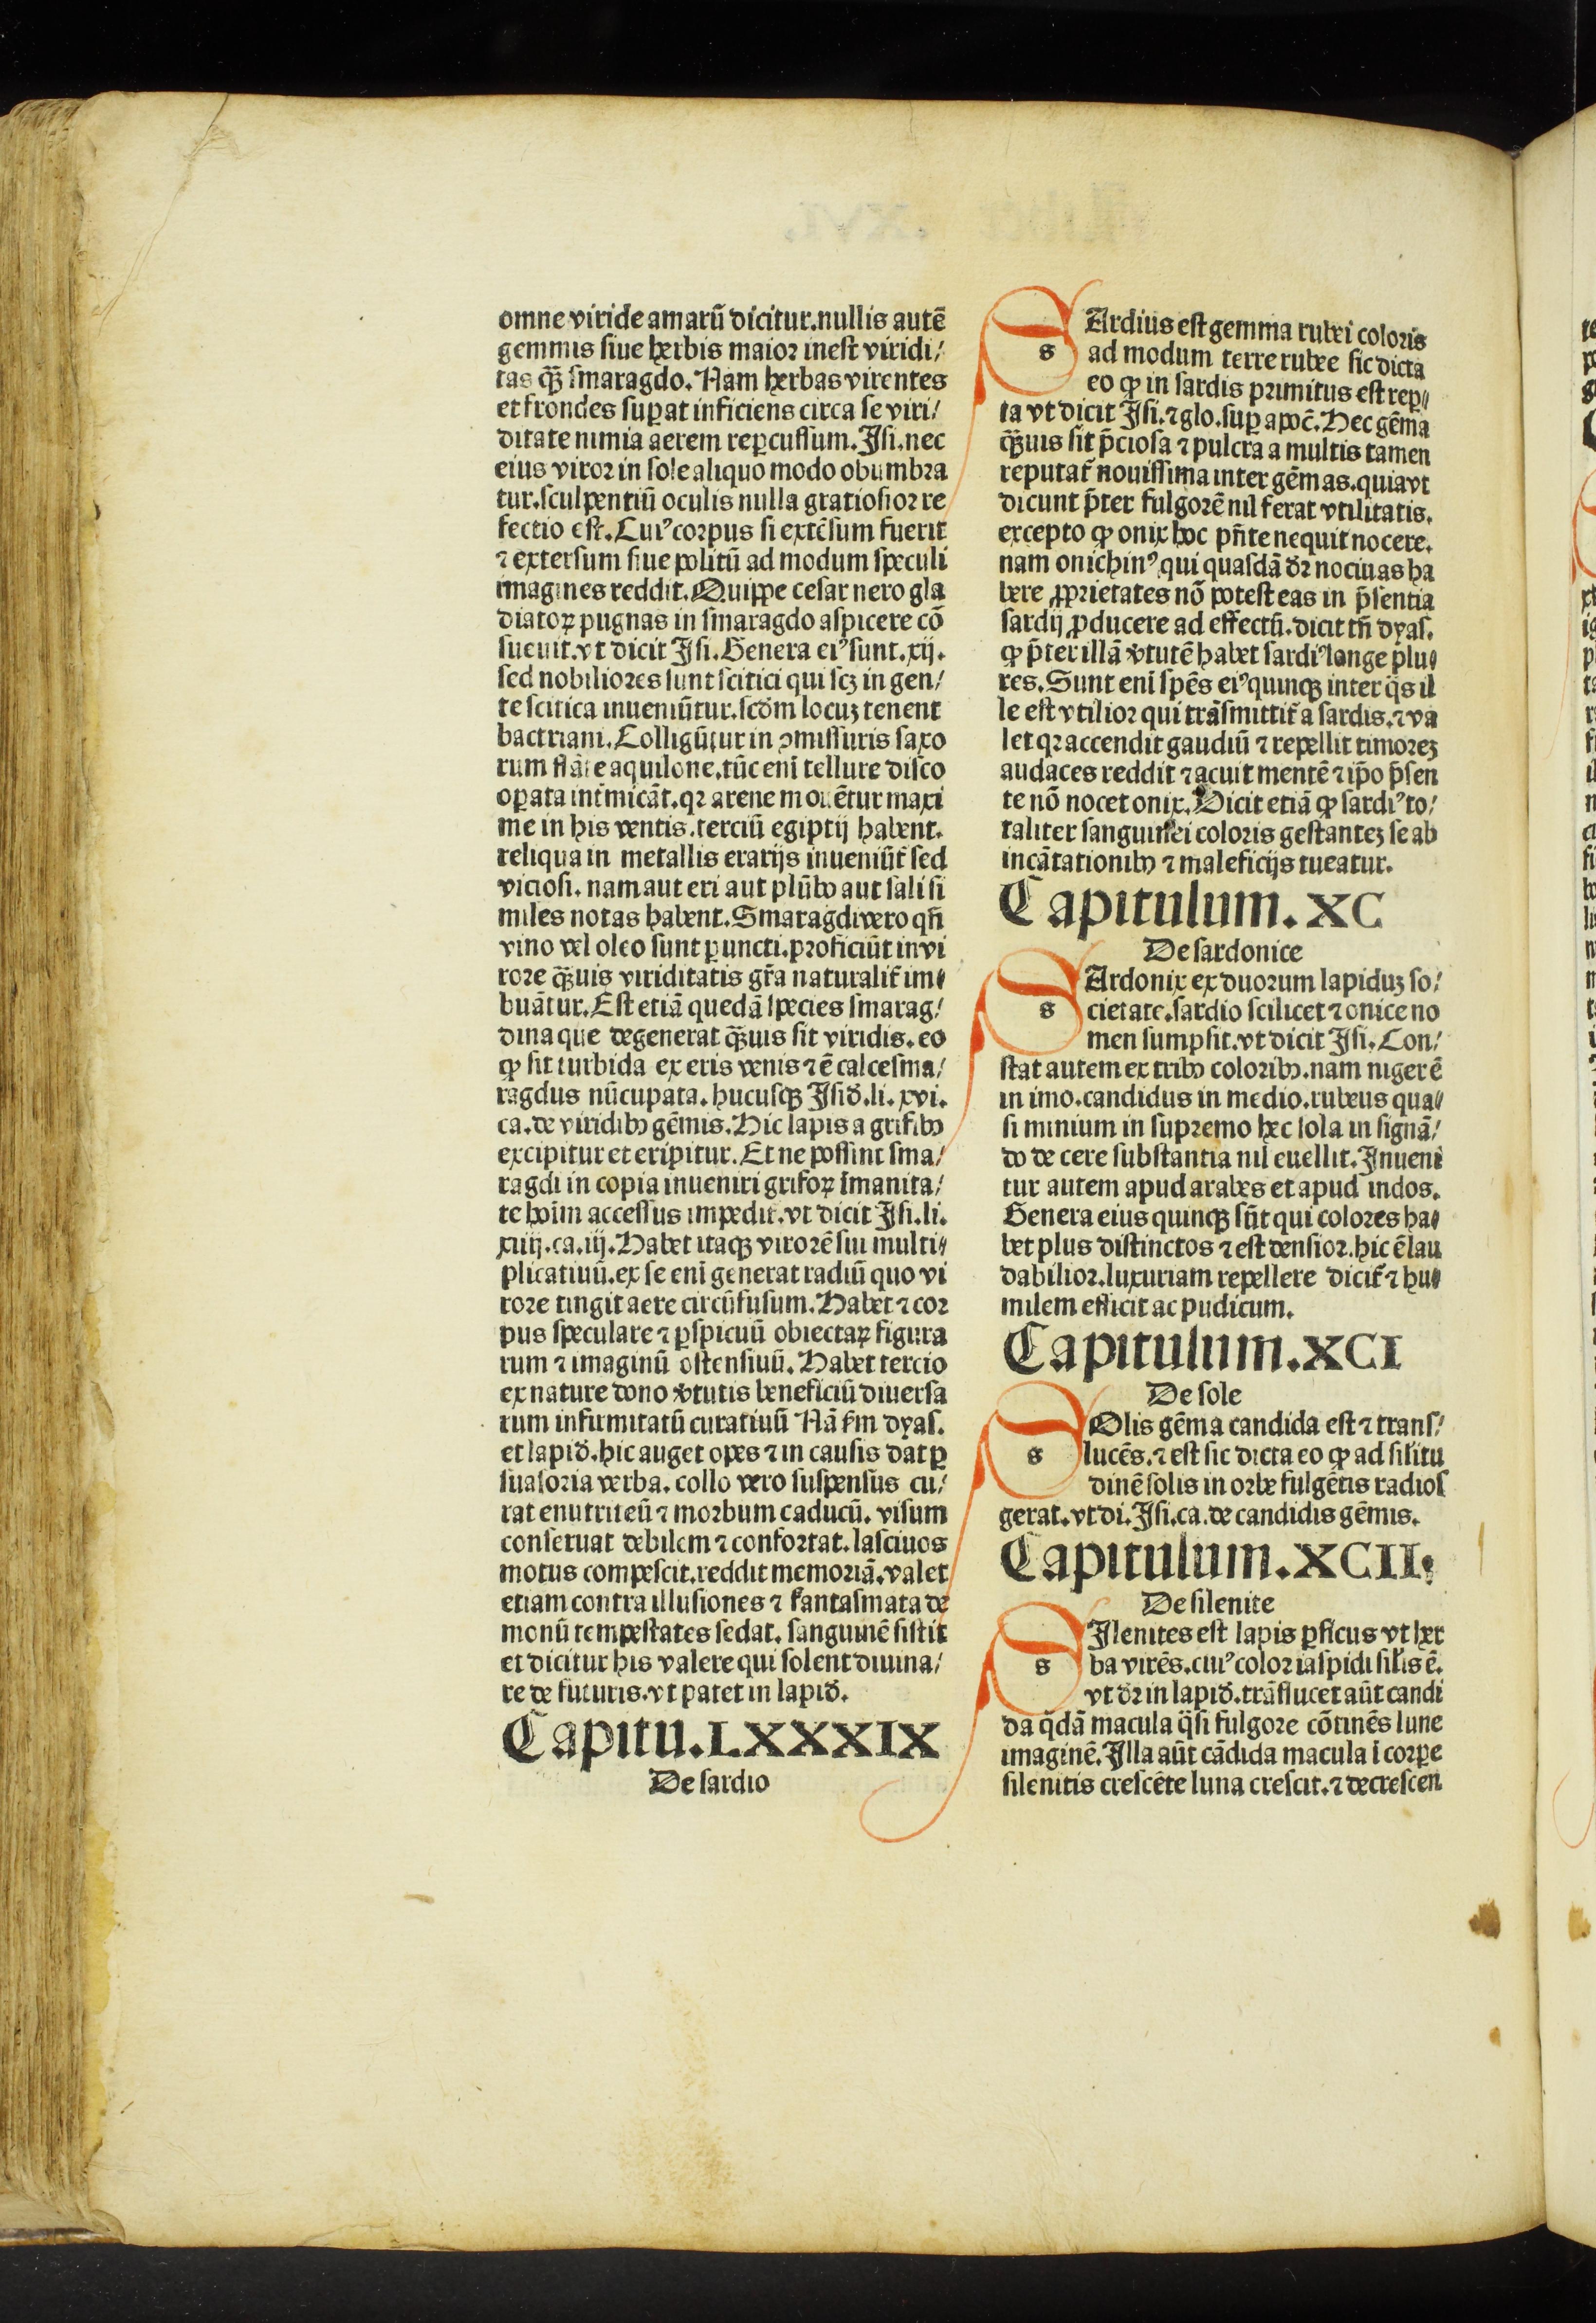 omne viride amarū dicitur.nullis autē
gemmis ſiue herbis maior ineſt viridi/
tas qꝫ̄ ſmaragdo. Nam herbas virentes
et frondes ſuꝑat inficiens circa ſe viri/
ditate nimia aerem reꝑcuſſum. Iſi. nec
eius viror in ſole aliquo modo obumbra
tur.ſculpentiū oculis nulla gratioſior re
fectio eſt. Cuiꝰ corpus ſi extēſum fuerit
⁊ exterſum ſiue politū ad modum ſpeculi
imagines reddit. Quippe ceſar nero gla
diatoꝝ pugnas in ſmaragdo aſpicere cō
ſueuit.vt dicit Iſi. Genera eiꝰ ſunt.xij.
ſed nobiliores ſunt ſcitici qui ſcꝫ in gen/
te ſcitica inueniūtur.ſcdm̄ locuꝫ tenent
bactriani. Colligūtur in ꝯmiſſuris ſaxo
rum flāte aquilone.tūc enī tellure diſco
oꝑata int̄micāt.qꝛ arene mouētur maxi
me in his ventis.terciū egiptij habent.
reliqua in metallis erarijs inueniūt̄ ſed
vicioſi. nam aut eri aut plūbo aut ſali ſi
miles notas habent. Smaragdi vero qn̄
vino vel oleo ſunt ꝑuncti.proficiūt in vi
rore qꝫ̄uis viriditatis gr̄a naturalit̄ im/
buātur. Eſt etiā quedā ſpecies ſmarag/
dina que degenerat qꝫ̄uis ſit viridis. eo
ꝙ ſit turbida ex eris venis ⁊ ē calceſma/
ragdus nūcupata. hucuſqꝫ Iſid̄.li. xvi.
ca.de viridibꝫ gēmis. Hic lapis a grifibꝫ
excipitur et eripitur. Et ne poſſint ſma/
ragdi in copia inueniri grifoꝝ īmanita/
te hoīm acceſſus impedit.vt dicit Iſi.li.
xiiij.ca.iij. Habet itaqꝫ virorē ſui multi/
plicatiuū.ex ſe enī generat radiū quo vi
rore tingit aere circūfuſum. Habet ⁊ cor
pus ſpeculare ⁊ ꝑſpicuū obiectaꝝ figura
rum ⁊ imaginū oſtenſiuū. Habet tercio
ex nature dono v̄tutis beneficiū diuerſa
rum infirmitatū curatiuū Nā ẜm dyaſ.
et lapid̄.hic auget opes ⁊ in cauſis dat ꝑ
ſuaſoria verba. collo vero ſuſpenſus cu/
rat emitriteū ⁊ morbum caducū. viſum
conſeruat debilem ⁊ confortat.laſciuos
motus compeſcit.reddit memoriā.valet
etiam contra illuſiones ⁊ fantaſmata de
monū tempeſtates ſedat. ſanguinē ſiſtit
et dicitur his valere qui ſolent diuina/
re de futuris.vt patet in lapid̄.
Capitu.LXXXIX
De ſardio
s
Ardius eſt gemma rubei coloris
ad modum terre rubee ſic dicta
eo ꝙ in ſardis primitus eſt reꝑ/
ta vt dicit Iſi.⁊ glo.ſuꝑ apoc̄. Hec gēma
qꝫ̄uis ſit p̄cioſa ⁊ pulcra a multis tamen
reputat̄ nouiſſima inter gēmas.quia vt
dicunt p̄ter fulgorē nil ferat vtilitatis.
excepto ꝙ onix hoc pn̄te nequit nocere.
nam onichinꝰ qui quaſdā dꝛ̄ nociuas ha
bere ꝓprietates nō poteſt eas in p̄ſentia
ſardij ꝓducere ad effectū.dicit tn̄ dyaſ.
ꝙ p̄ter illā v̄tutē habet ſardiꝰ longe plu/
res. Sunt enī ſpēs eiꝰ quinqꝫ inter q̄s il
le eſt vtilior qui trāſmittit̄ a ſardis.⁊ va
let qꝛ accendit gaudiū ⁊ repellit timoreꝫ
audaces reddit ⁊ acuit mentē ⁊ ip̄o p̄ſen
te nō nocet onix. Dicit etiā ꝙ ſardiꝰ to/
taliter ſanguinei coloris geſtanteꝫ ſe ab
incātationibꝫ ⁊ maleficijs tueatur.
Capitulum. XC
De ſardonice
s
Ardonix ex duorum lapiduꝫ ſo/
cietate.ſardio ſcilicet ⁊ onice no
men ſumpſit.vt dicit Iſi. Con/
ſtat autem ex tribꝫ coloribꝫ.nam niger ē
in imo.candidus in medio.rubeus qua/
ſi minium in ſupremo hec ſola in ſignā/
do de cere ſubſtantia nil euellit. Inueni
tur autem apud arabes et apud indos.
Genera eius quinqꝫ ſūt qui colores ha/
bet plus diſtinctos ⁊ eſt denſior.hic ē lau
dabilior.luxuriam repellere dicit̄ ⁊ hu/
milem efficit ac pudicum.
Capitulum.XCI
De ſole
s
Olis gēma candida eſt ⁊ tranſ/
lucēs.⁊ eſt ſic dicta eo ꝙ ad ſilitu
dinē ſolis in orbe fulgētis radioſ
gerat.vt di. Iſi.ca.de candidis gēmis.
Capitulum.XCII.
De ſilenite
s
Ilenites eſt lapis ꝑſicus vt her
ba virēs.cuiꝰ color iaſpidi ſilis ē.
vt dꝛ̄ in lapid̄.trāſlucet aūt candi
da q̄dā macula q̄ſi fulgore cōtinēs lune
imaginē. Illa aūt cādida macula ī corꝑe
ſilenitis creſcēte luna creſcit.⁊ decreſcen